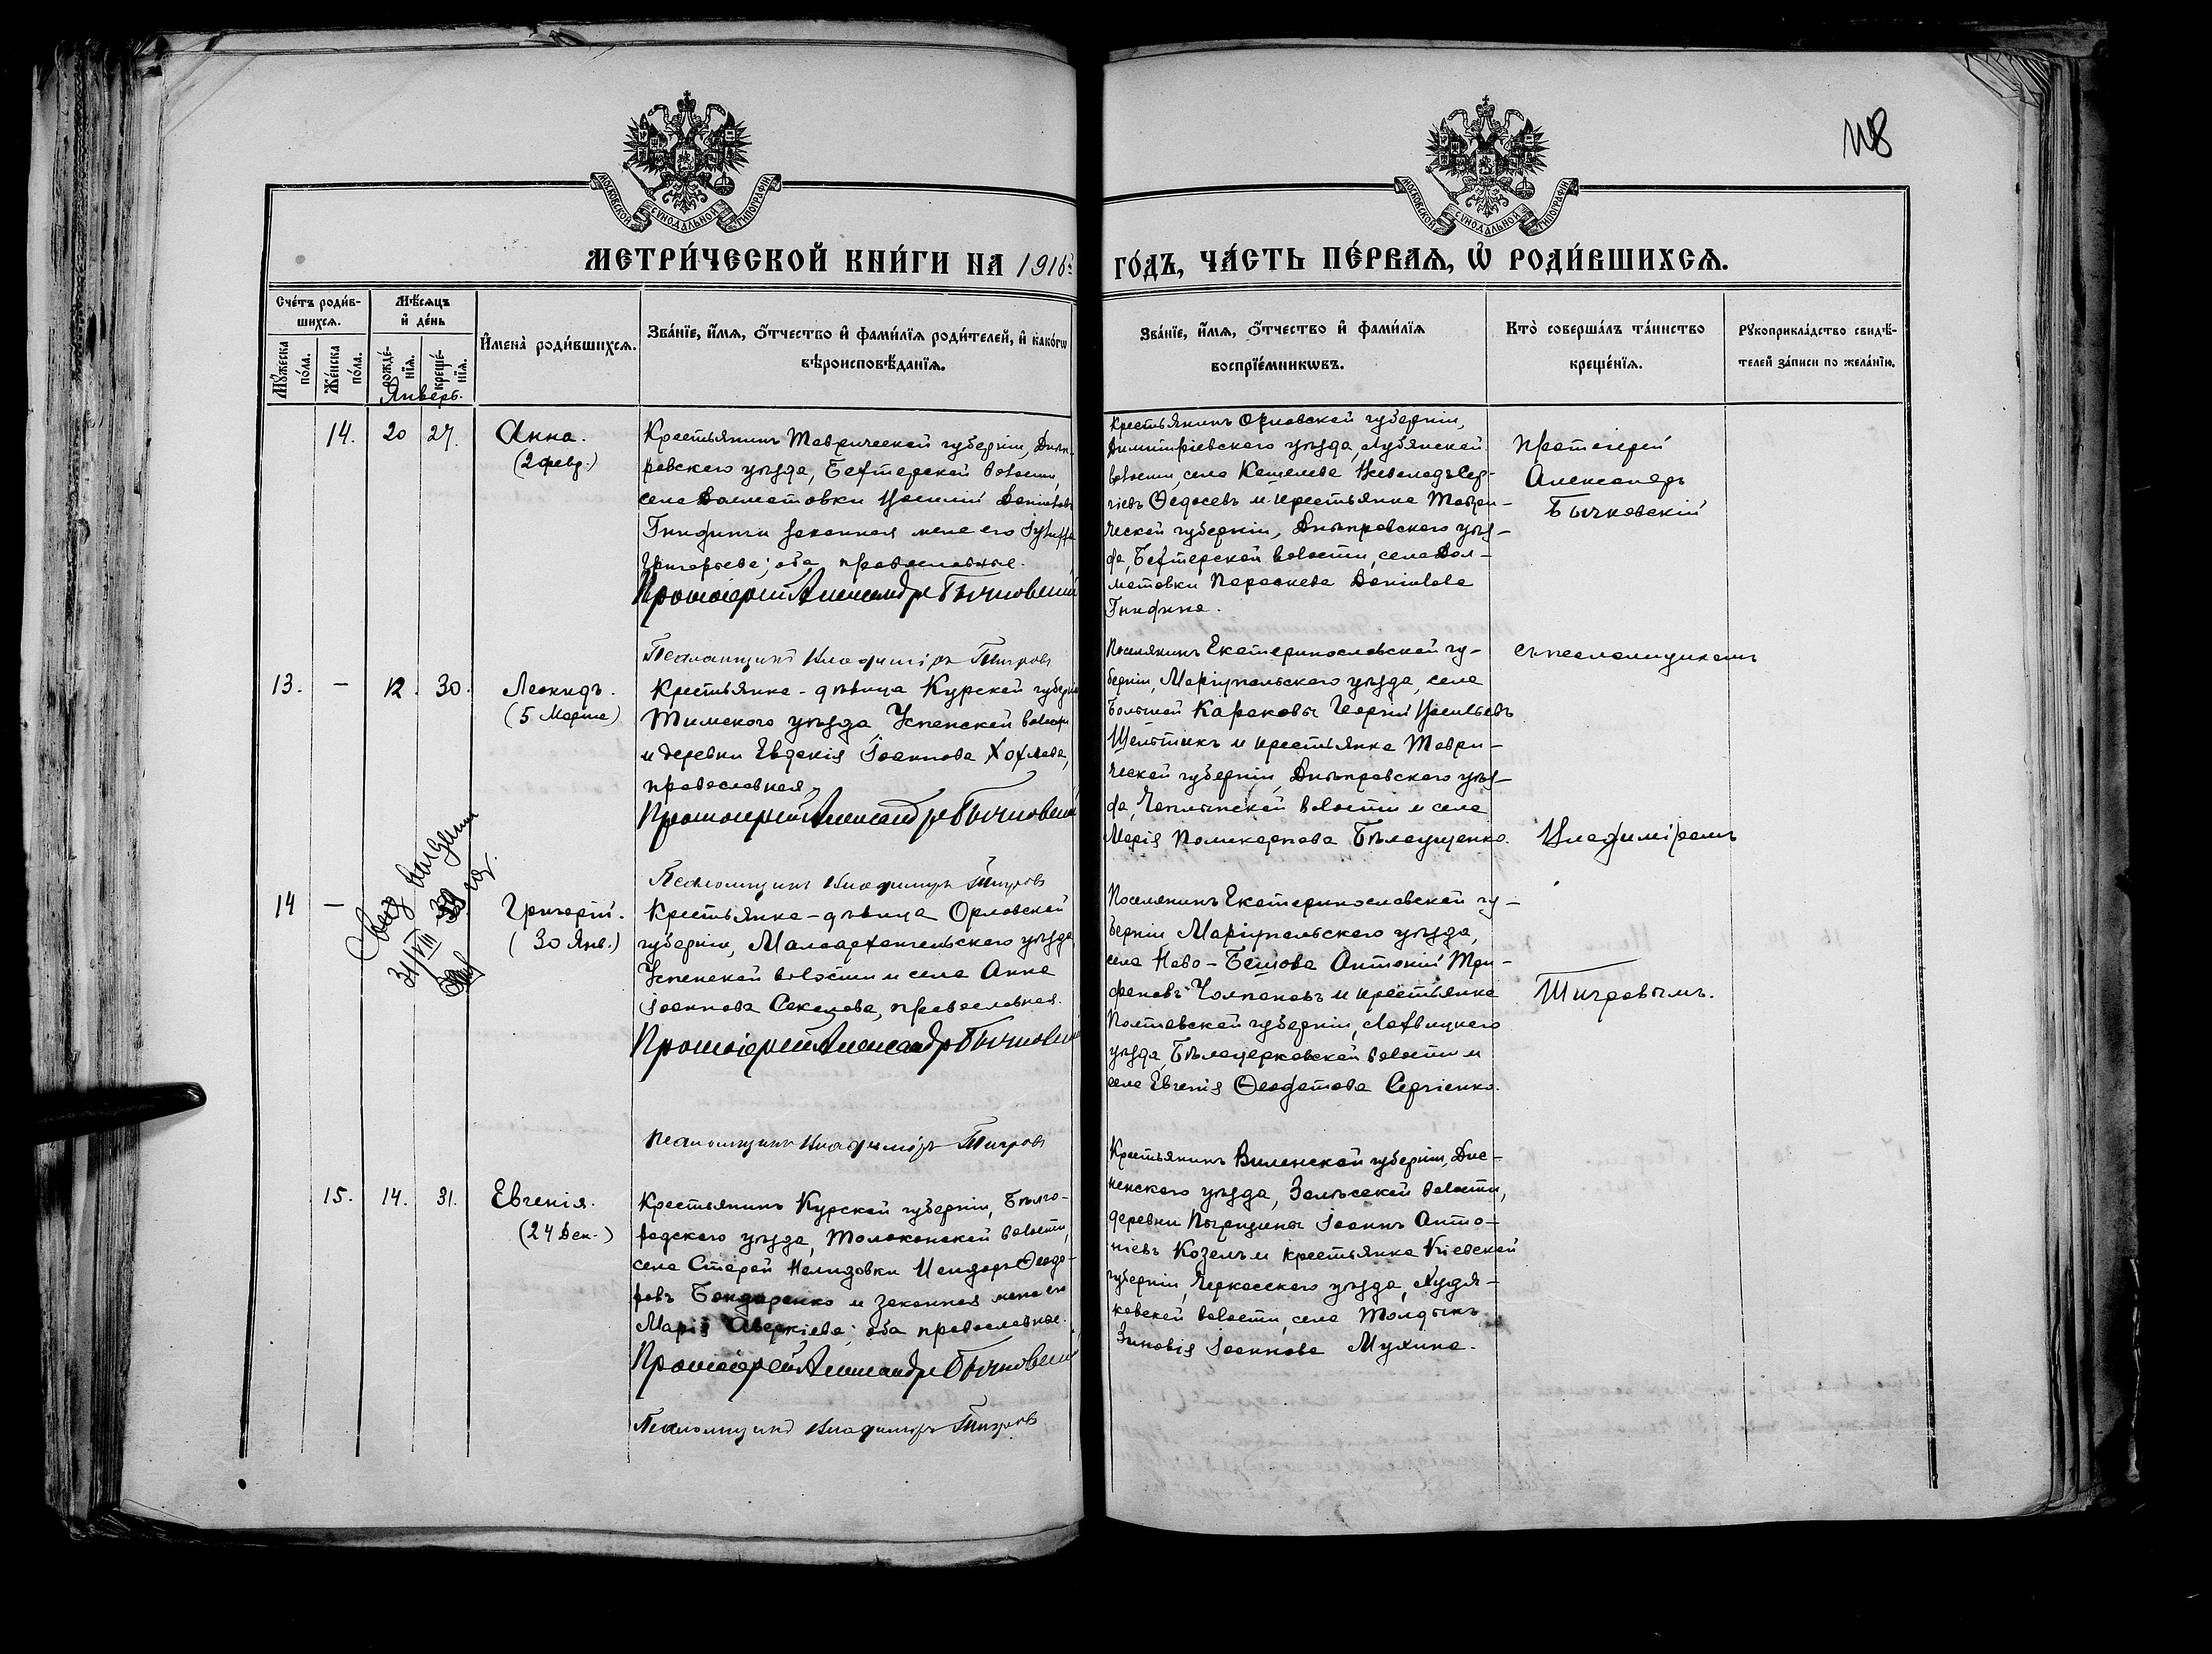 118
МОСКОВСКОЙ СѴНОДАЛЬНОЙ ТИПОГРАФІИ
МОСКОВСКОЙ СѴНОДАЛЬНОЙ ТИПОГРАФІИ
МЕТРИ́ЧЕСКОЙ КНИ́ГИ НА 1916й ГО́ДЪ, ЧА́СТЬ ПЕ́РВАЯ, Ѽ РОДИ́ВШИХСѦ.
Сче́тъ роди́в-
шихсѧ.
Мꙋ́жеска по́ла.
Же́нска по́ла.
Мѣ́сѧцъ
и҆ де́нь
рожде́-
нїѧ.
креще́-
нїѧ.
Январь.
И҆мена̀ роди́вшихсѧ.
Зва́нїе, и҆́мѧ, ѻ҆́тчество и҆ фами́лїѧ роди́телей, и҆ како́гѡ
вѣроисповѣ́данїѧ.
Зва́нїе, и҆́мѧ, ѻ҆́тчество и҆ фами́лїѧ
воспрїе́мникѡвъ.
Кто̀ соверша́лъ та́инство
креще́нїѧ.
Рꙋкоприкла́дство свидѣ́-
телей за́писи по жела́нїю.
14. 20 27.
Анна.
(2 февр.)
Крестьянинъ Таврической губерніи, Днѣп-
ровскаго уѣзда, Бехтерской волости,
села Долматовки Василій Даніиловъ
Гнидинъ и законная жена его
Григорьева; оба православные.
Протоіерей Александръ Бычковскій
Псаломщикъ Владиміръ Тигровъ
Крестьянинъ Орловской губерніи,
Димитріевскаго уѣзда, Лубянской
волости, села Кошелева Всеволодъ Сер-
гіевъ Ѳедосевъ и крестьянка Таври-
ческой губерніи, Днѣпровскаго уѣз-
да, Бехтерской волости, села Дол-
матовки Параскева Даніилова
Гнидина.
Протоіерей
Александръ
Бычковскій
съ псаломщикомъ
Владиміромъ
Тигровымъ.
13. – 12. 30.
Леонидъ.
(5 Марта)
Крестьянка-дѣвица Курской губерніи
Тимскаго уѣзда, Успенской волости
и деревни Евдокія Іоаннова Хохлова,
православная.
Протоіерей Александръ Бычковскій
Псаломщикъ Владиміръ Тигровъ
Поселянинъ Екатеринославской гу-
берніи, Маріупольскаго уѣзда, села
Большой Каракобы Георгій Васильевъ
и крестьянка Таври-
ческой губерніи, Днѣпровскаго уѣз-
да, Чаплынской волости и села
Марія Поликарпова Бѣлаущенко.
14 –
31/VIII
Григорій.
(30 Янв.)
Крестьянка-дѣвица Орловской
губерніи, Малоархангельскаго уѣзда
Успенской волости и села Анна
Іоаннова православная.
Протоіерей Александръ Бычковскій
Псаломщикъ Владиміръ Тигровъ
Поселянинъ Екатеринославской гу-
берніи Маріупольскаго уѣзда,
села Ново-Бешова Антоній Три-
фоновъ Чолпановъ и крестьянка
Полтавской губерніи, Лохвицкаго
уѣзда, Бѣлоцерковской волости и
села Евгенія Ѳеодотова Сергіенко.
15. 14. 31.
Евгенія.
(24 Дек.)
Крестьянинъ Курской губерніи, Бѣлго-
родскаго уѣзда, Толоконской волости,
села Старой Нелидовки Исидоръ Ѳеодо-
ровъ Бондаренко и законная жена его
Марія Аверкіева; оба православные.
Протоіерей Александръ Бычковскій
Псаломщикъ Владиміръ Тигровъ
Крестьянинъ Виленской губерніи, Дис-
ненскаго уѣзда, Залѣсской волости,
деревни Іоаннъ Анто-
ніевъ Козелъ и крестьянка Кіевской
губерніи, Черкасскаго уѣзда, Худя-
ковской волости, села Толдыкъ
Зиновія Іоаннова Мухина.